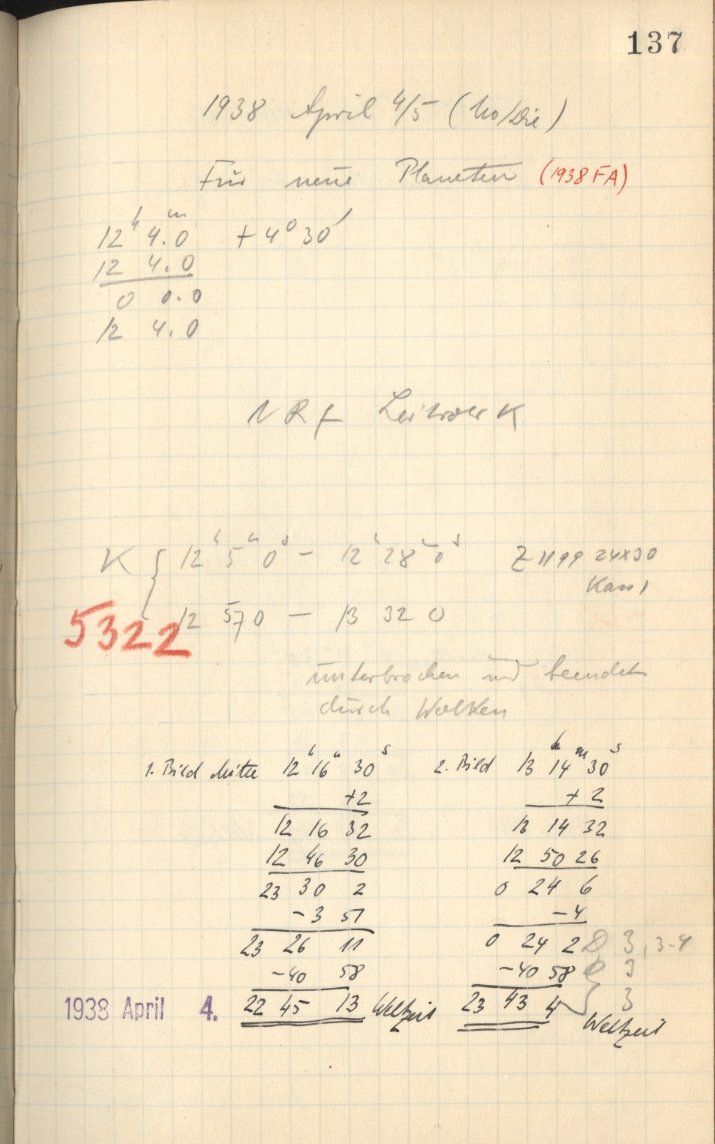 137
1938 April 4/5 (Mo/Die)
Für neue Planeten (1938 FA)
12ʰ 4.ᵐ0 + 4° 30′
12 4.0
0 0.0
12 4.0
NRf Leitrohr K
K { 12ʰ 5ᵐ 0ˢ – 12ʰ 28ᵐ 0ˢ Z 1199 24x30
12 57 0 – 13 32 0
5322
unterbrochen und beendet
durch Wolken
1. Bild Mitte 12ʰ 16ᵐ 30ˢ 2. Bild 13ʰ 14ᵐ 30ˢ
+2 + 2
12 16 32 13 14 32
12 46 30 12 50 26
23 30 2 0 24 6
-3 51 -4
23 26 11 0 24 2 D 3, 3-4
-40 58 -40 58 3
1938 April 4. 22 45 13 Weltzeit 23 43 4 3
Weltzeit